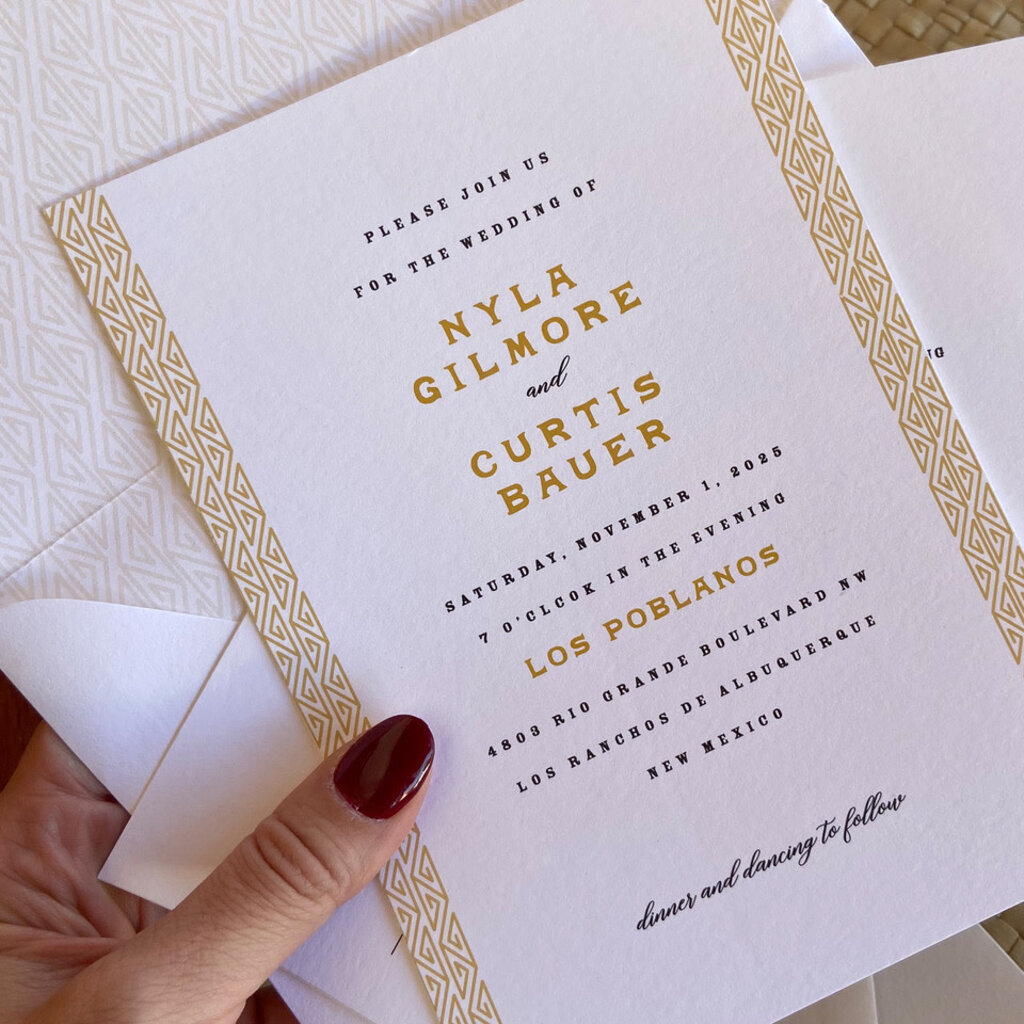 PLEASE JOIN US
FOR THE WEDDING OF
NYLA
GILMORE
and
CURTIS
BAUER
SATURDAY, NOVEMBER 1, 2025
7 O'CLCOK IN THE EVENING
LOS POBLANOS
4803 RIO GRANDE BOULEVARD NW
LOS RANCHOS DE ALBUQUERQUE
NEW MEXICO
dinner and dancing to follow